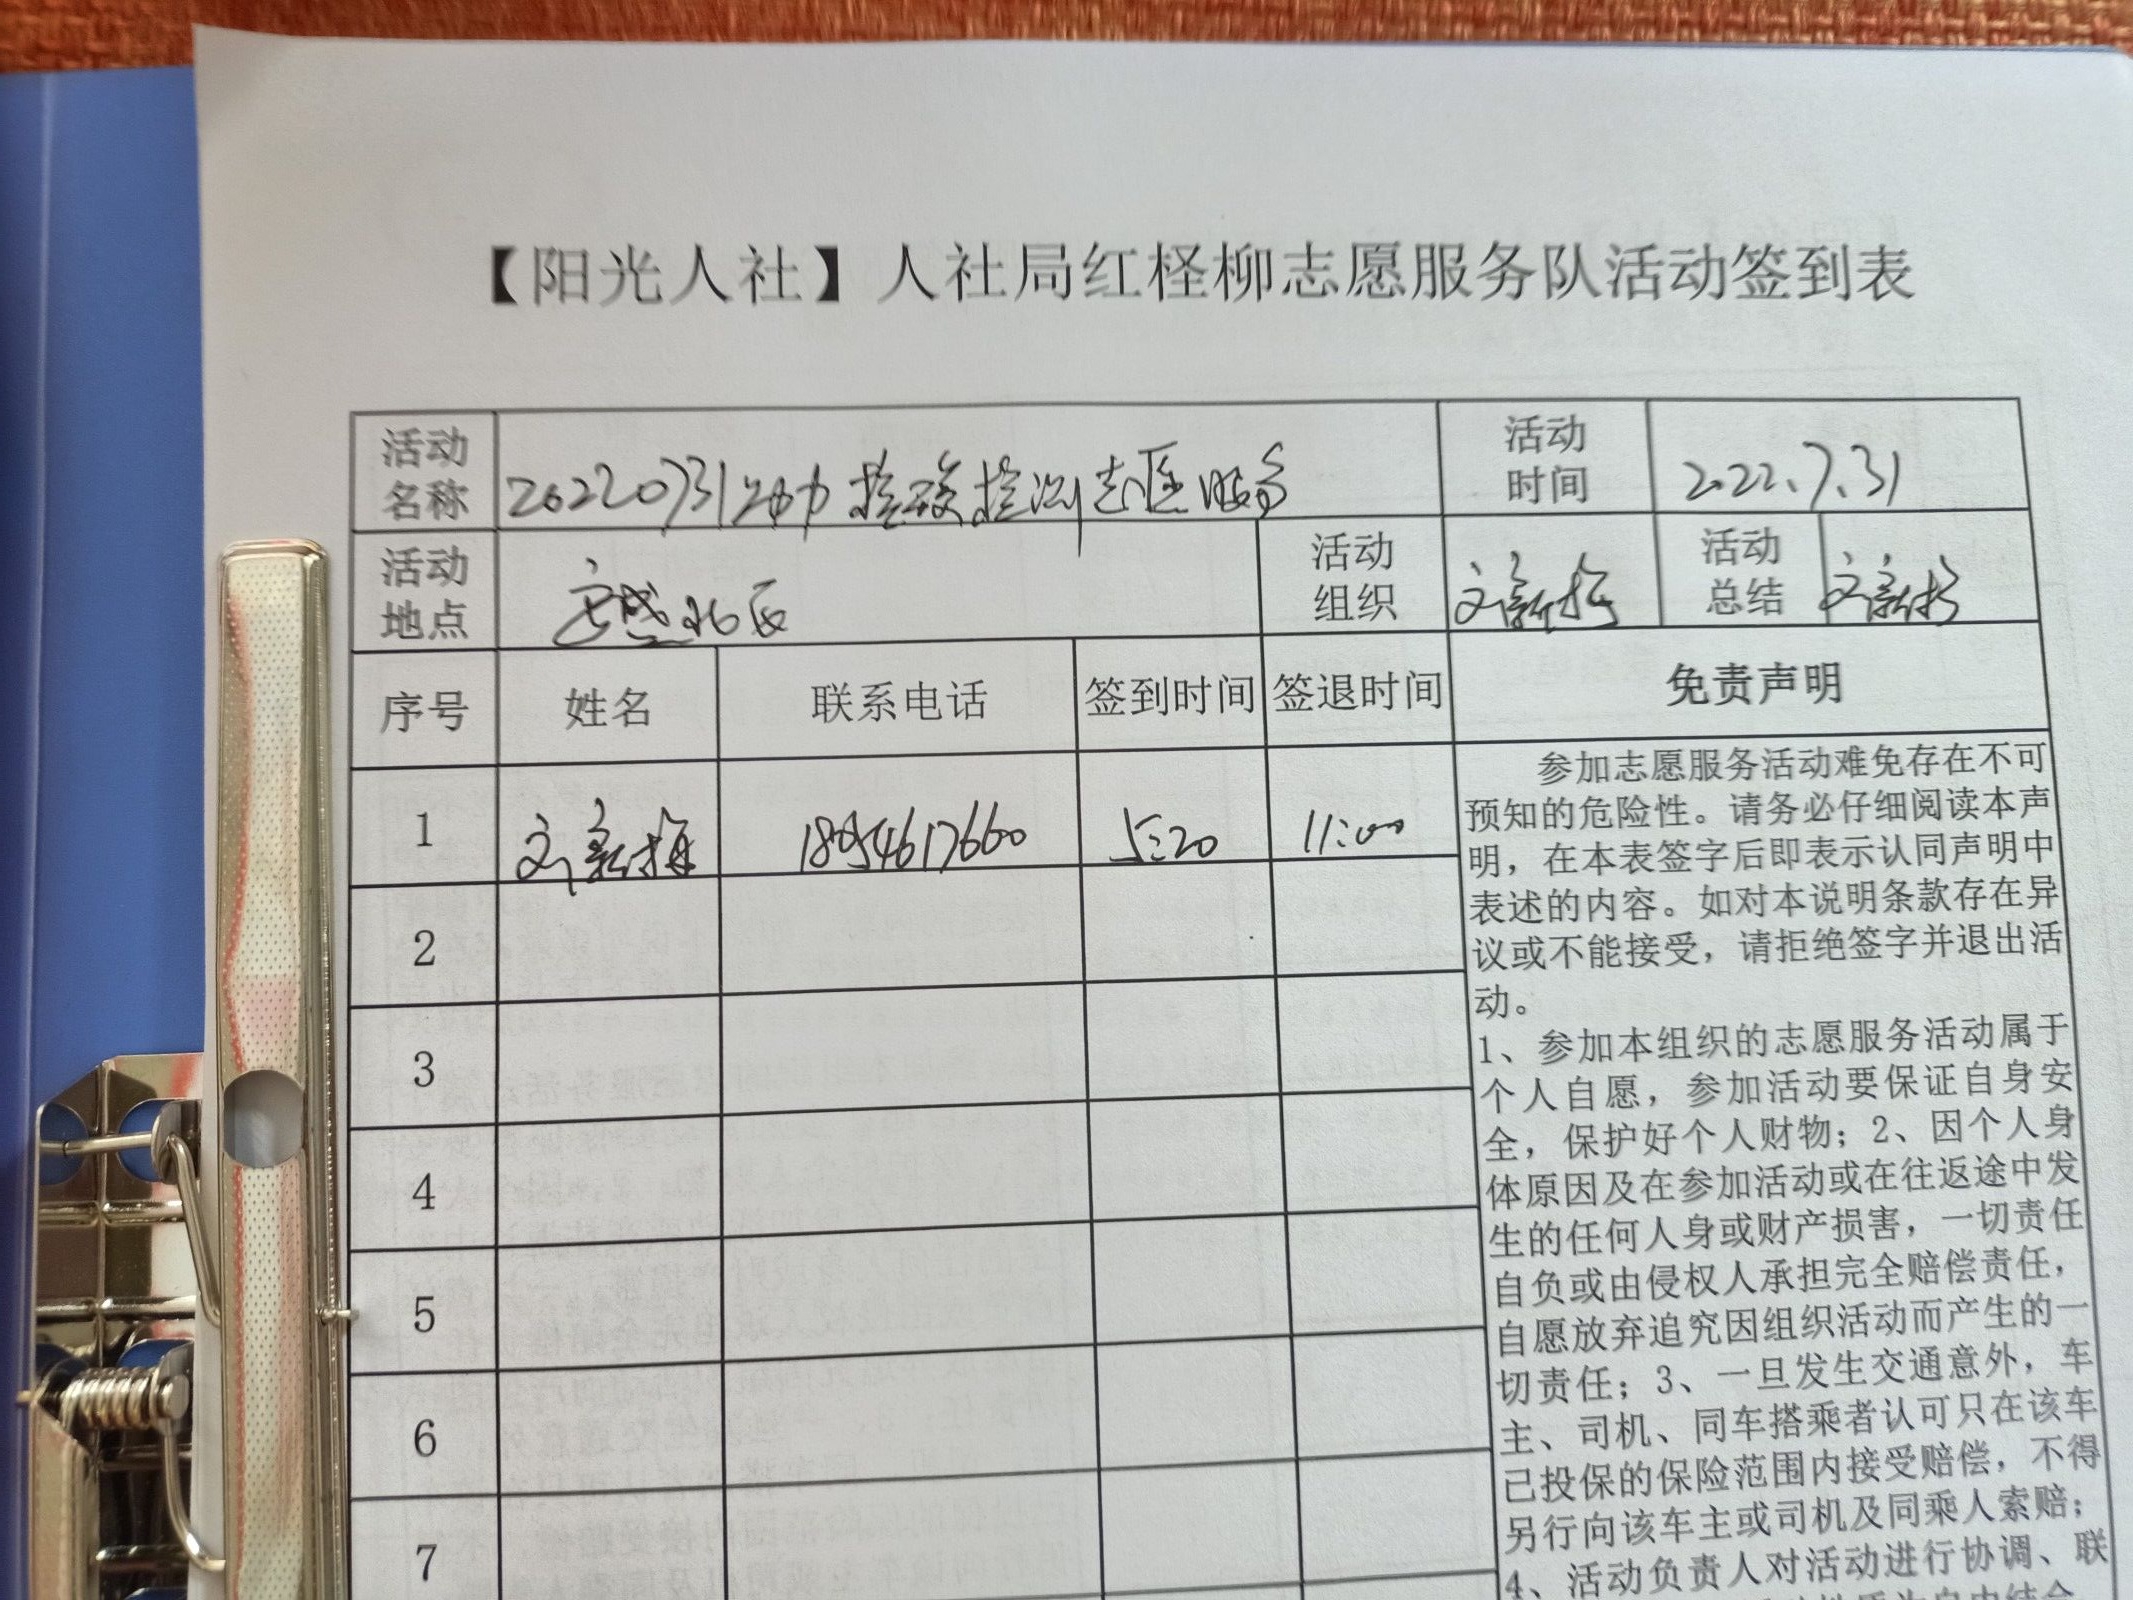 【阳光人社】人社局红柽柳志愿服务队活动签到表
活动名称 20220731助力核酸检测志愿服务 活动时间 2022.7.31
活动地点 活动组织 刘新梅 活动总结 刘新梅
序号 姓名 联系电话 签到时间 签退时间 免责声明
1 刘新梅 18954617660 5:20 11:00
2
3
4
5
6
7
参加志愿服务活动难免存在不可
预知的危险性。请务必仔细阅读本声
明，在本表签字后即表示认同声明中
表述的内容。如对本说明条款存在异
议或不能接受，请拒绝签字并退出活
动。
1、参加本组织的志愿服务活动属于
个人自愿，参加活动要保证自身安
全，保护好个人财物；2、因个人身
体原因及在参加活动或在往返途中发
生的任何人身或财产损害，一切责任
自负或由侵权人承担完全赔偿责任，
自愿放弃追究因组织活动而产生的一
切责任；3、一旦发生交通意外，车
主、司机、同车搭乘者认可只在该车
己投保的保险范围内接受赔偿，不得
另行向该车主或司机及同乘人索赔；
4、活动负责人对活动进行协调、联